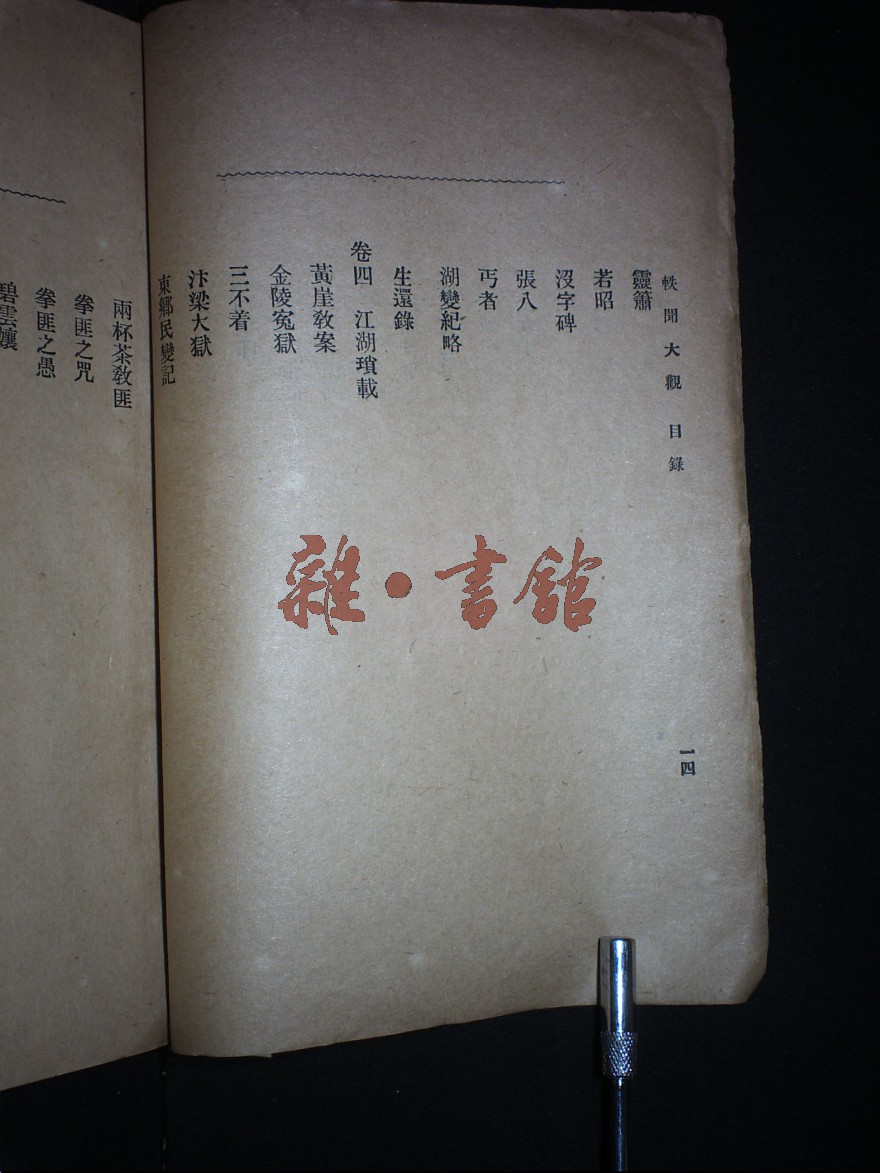 軼聞大觀 目錄
一四
靈簫
若昭
沒字碑
張八
丐者
湖變紀略
生還錄
卷四 江湖瑣載
黃崖敎案
金陵寃獄
三不着
汴梁大獄
東鄉民變記
兩杯茶敎匪
拳匪之咒
拳匪之愚
碧雲孃
雜·書館